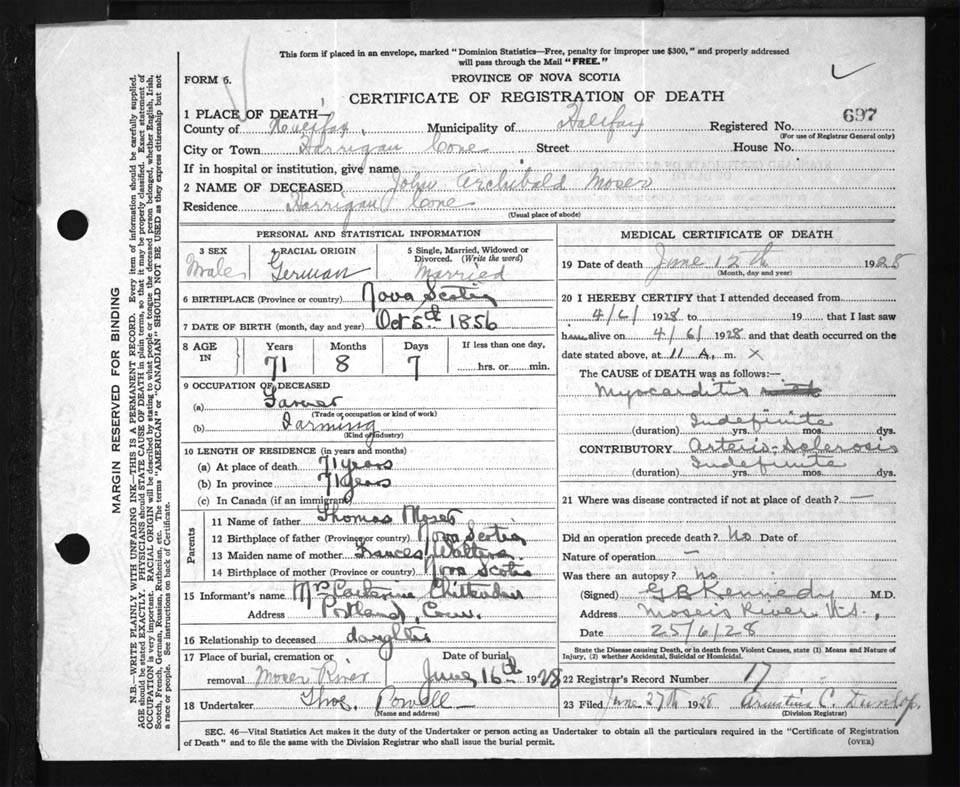 This form if placed in an envelope, marked "Dominion Statistics—Free, penalty for improper use $300," and properly addressed
will pass through the Mail "FREE."
FORM 6.
PROVINCE OF NOVA SCOTIA
CERTIFICATE OF REGISTRATION OF DEATH
1 PLACE OF DEATH—
County of Halifax, Municipality of Halifax Registered No. 697
(For use of Registrar General only)
City or Town Harrigan Cove Street House No.
If in hospital or institution, give name
2 NAME OF DECEASED John Archibald Moser
Residence Harrigan Cove
(Usual place of abode)
PERSONAL AND STATISTICAL INFORMATION
3 SEX 4 RACIAL ORIGIN 5 Single, Married, Widowed or
Divorced. (Write the word)
Male German Married
6 BIRTHPLACE (Province or country) Nova Scotia
7 DATE OF BIRTH (month, day and year) Oct 5th 1856
8 AGE IN Years Months Days If less than one day,
71 8 7 hrs. or min.
9 OCCUPATION OF DECEASED
(a) Farmer
(Trade or occupation or kind of work)
(b) Farming
(Kind of industry)
10 LENGTH OF RESIDENCE (in years and months)
(a) At place of death 71 years
(b) In province 71 years
(c) In Canada (if an immigrant)
Parents
11 Name of father Thomas Moser
12 Birthplace of father (Province or country) Nova Scotia
13 Maiden name of mother Frances Walters
14 Birthplace of mother (Province or country) Nova Scotia
15 Informant's name Mrs Catherine
Address Portland, Conn.
16 Relationship to deceased daughter
17 Place of burial, cremation or Date of burial
removal Moser River June 16th 1928
18 Undertaker Thos. Powell
(Name and address)
MEDICAL CERTIFICATE OF DEATH
19 Date of death June 12th 1928
(Month, day and year)
20 I HEREBY CERTIFY that I attended deceased from
4/6/ 1928 to 19 that I last saw
him alive on 4/6/ 1928 and that death occurred on the
date stated above, at 11 A. m. X
The CAUSE of DEATH was as follows:—
Myocarditis
Indefinite
(duration) yrs. mos. dys.
CONTRIBUTORY Arterio-Sclerosis
Indefinite
(duration) yrs. mos. dys.
21 Where was disease contracted if not at place of death? —
Did an operation precede death? No Date of
Nature of operation —
Was there an autopsy? No
(Signed) G B Kennedy M.D.
Address Moseis River N.S.,
Date 25/6/28
State the Disease causing Death, or in death from Violent Causes, state (1) Means and Nature of
Injury, (2) whether Accidental, Suicidal or Homicidal.
22 Registrar's Record Number 17
23 Filed June 27th 1928 C. Dunlop.
(Division Registrar)
SEC. 46—Vital Statistics Act makes it the duty of the Undertaker or person acting as Undertaker to obtain all the particulars required in the "Certificate of Registration
of Death" and to file the same with the Division Registrar who shall issue the burial permit.
(OVER)
MARGIN RESERVED FOR BINDING
N.B.—WRITE PLAINLY WITH UNFADING INK—THIS IS A PERMANENT RECORD. Every item of information should be carefully supplied.
AGE should be stated EXACTLY. PHYSICIANS should STATE CAUSE OF DEATH in plain terms, so that it may be properly classified. Exact statement of
OCCUPATION is very important. RACIAL ORIGIN will be described by stating to what people or tongue the deceased person belonged, whether English, Irish,
Scotch, French, German, Russian, Ruthenian, etc. The terms "AMERICAN" or "CANADIAN" SHOULD NOT BE USED as they express citizenship but not
a race or people. See instructions on back of Certificate.